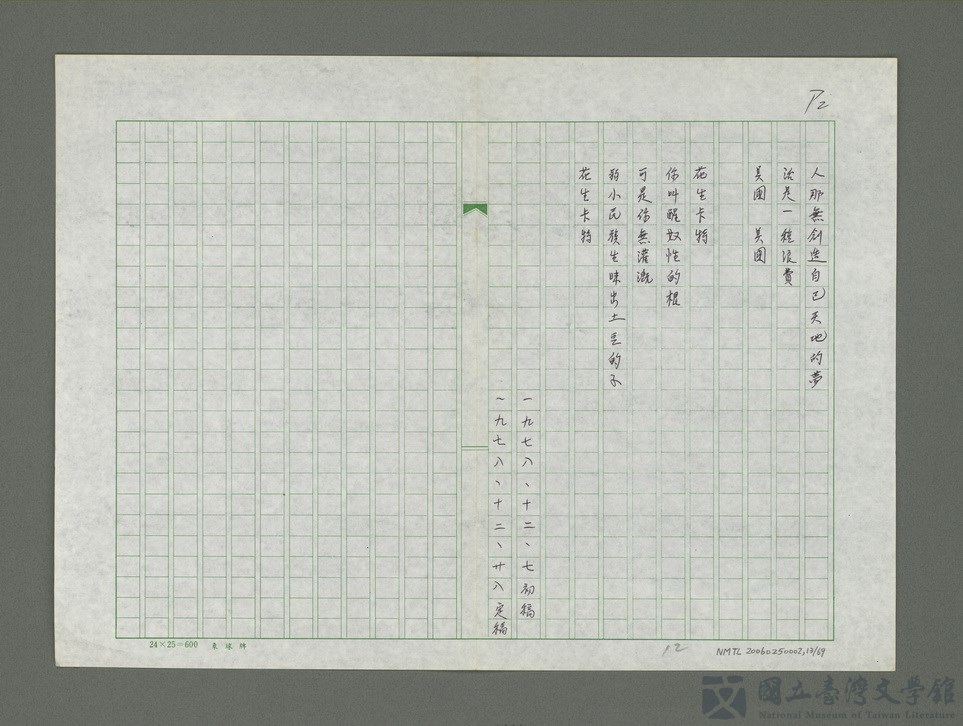 P2
人那無創造自己天地的夢
活是一種浪費
美國 美國
花生卡特
你叫醒奴性的根
可是你無灌溉
弱小民族生味出土豆的子
花生卡特
一九七八、十二、七初稿
一九七八、十二、廿八定稿
24×25=600
12
NMTL 20060250002,13/69
國立臺灣文學館
National Museum of Taiwan Literature